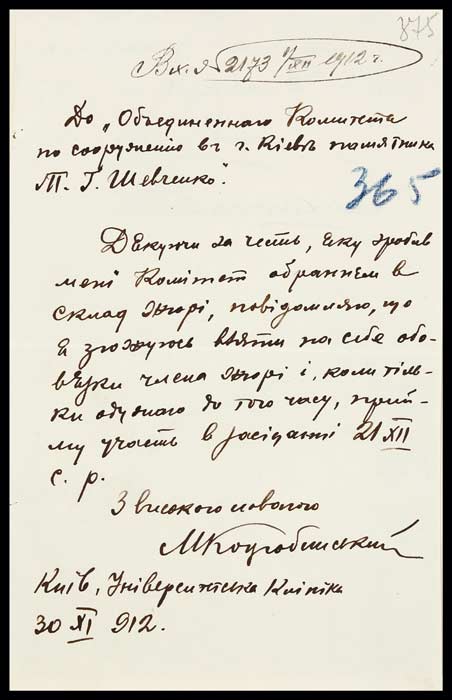 375
Вх. № 2173 1/XII 1912 г.
До „Объединеннаго Комитета
по сооруженію въ г. Кіевѣ памятника
Т. Г. Шевченко".
365
Дякуючи за честь, яку зробив
мені Комітет обраннєм в
склад жюрі, повідомляю, що
я згожуюсь взяти на себе обо-
вязки члена жюрі і, коли тіль-
ки одужаю до того часу, прий-
му участь в засіданні 21 XII
с. р.
З високого повагою
МКоцюбинський
Київ, Університська Клініка
30 XI 912.